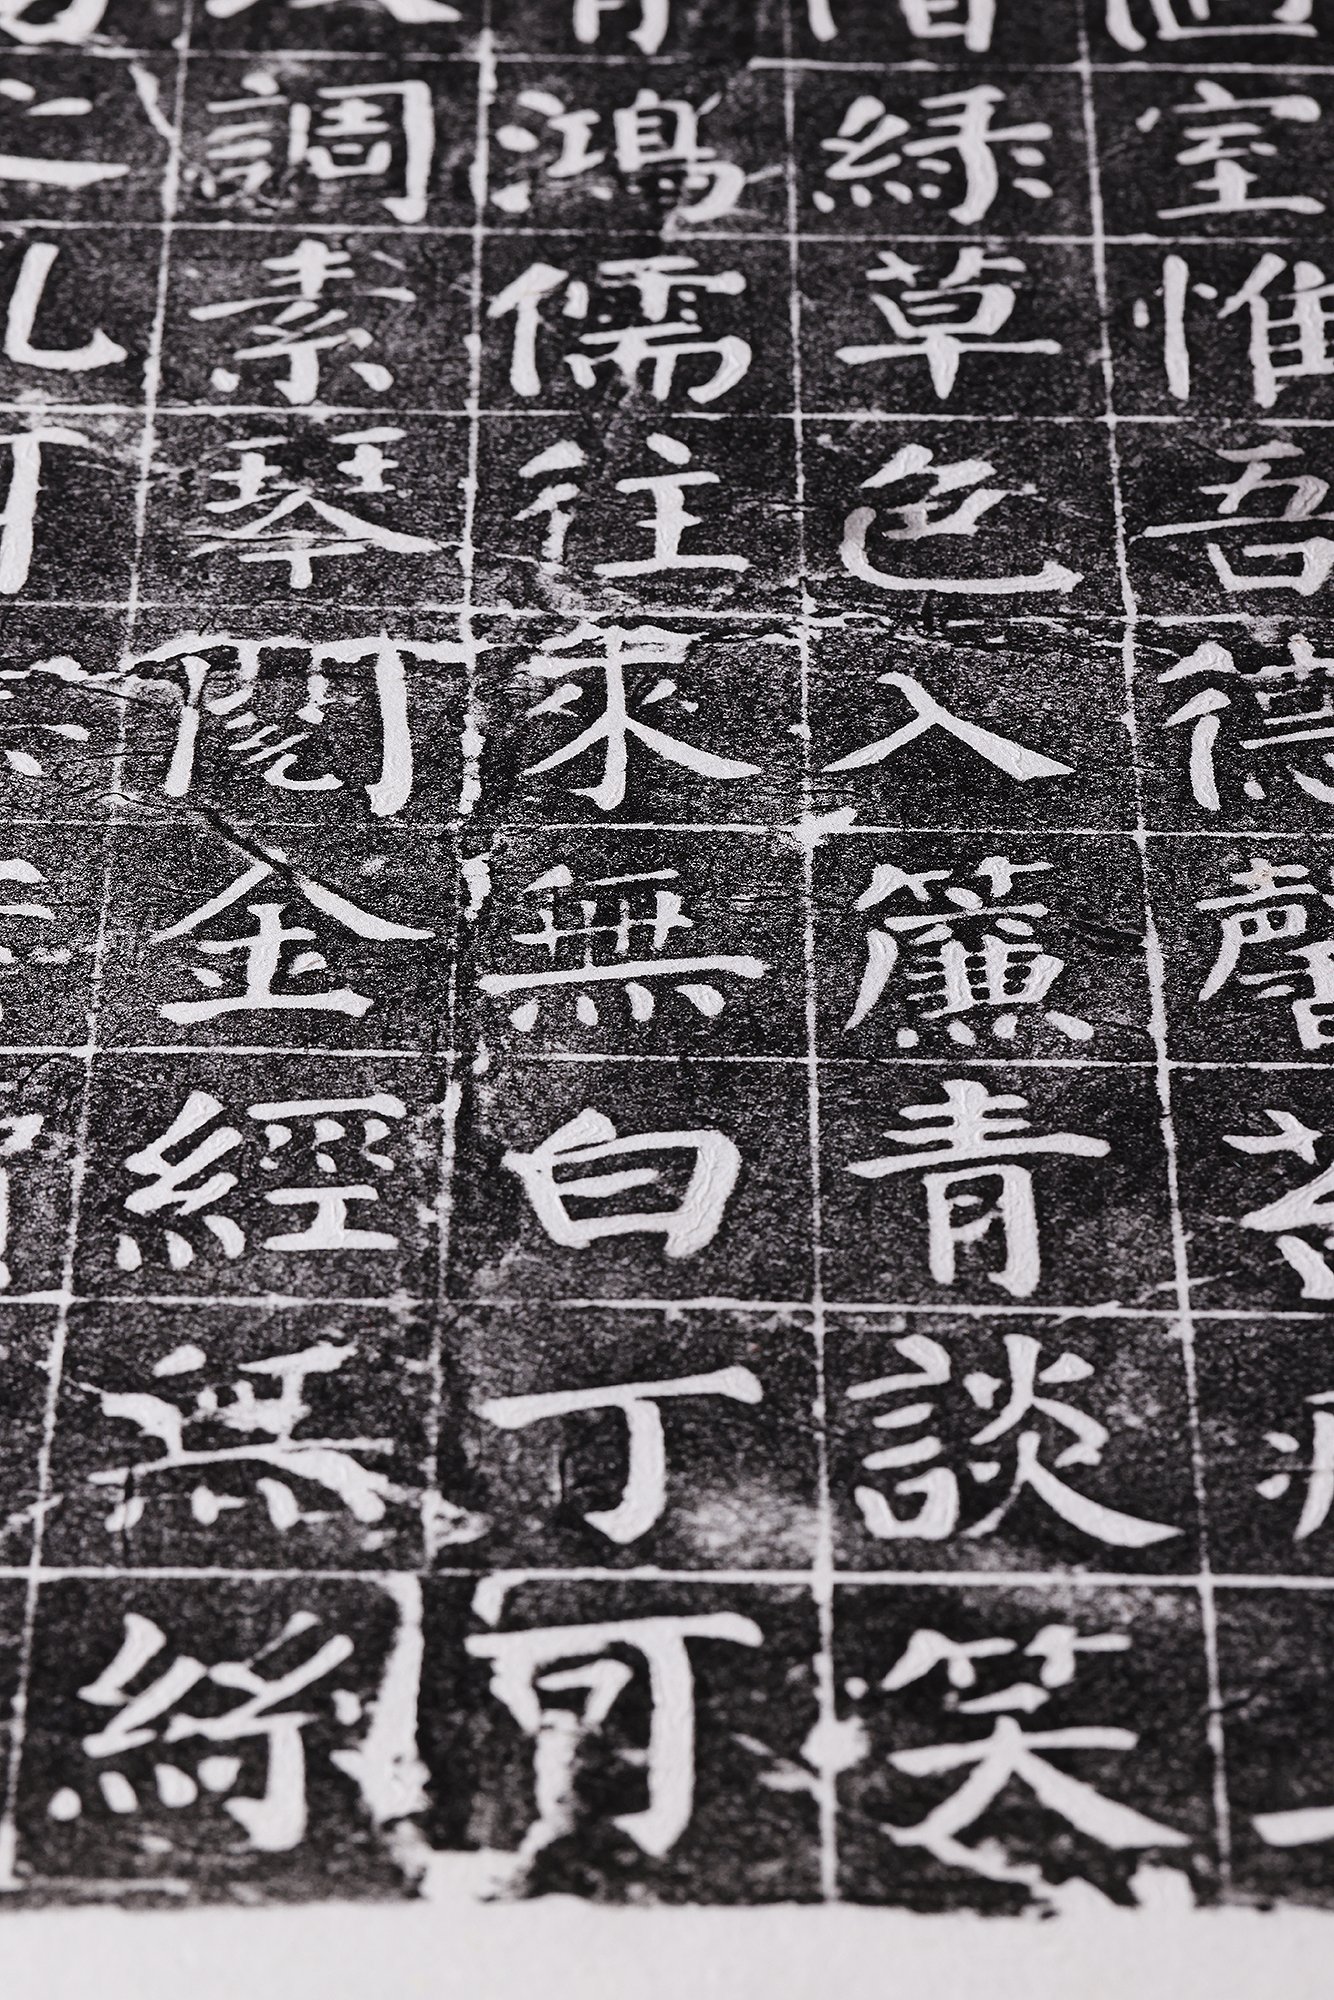 室惟吾德馨
綠草色入簾青談笑
鴻儒往來無白丁可
調素琴閱金經無絲